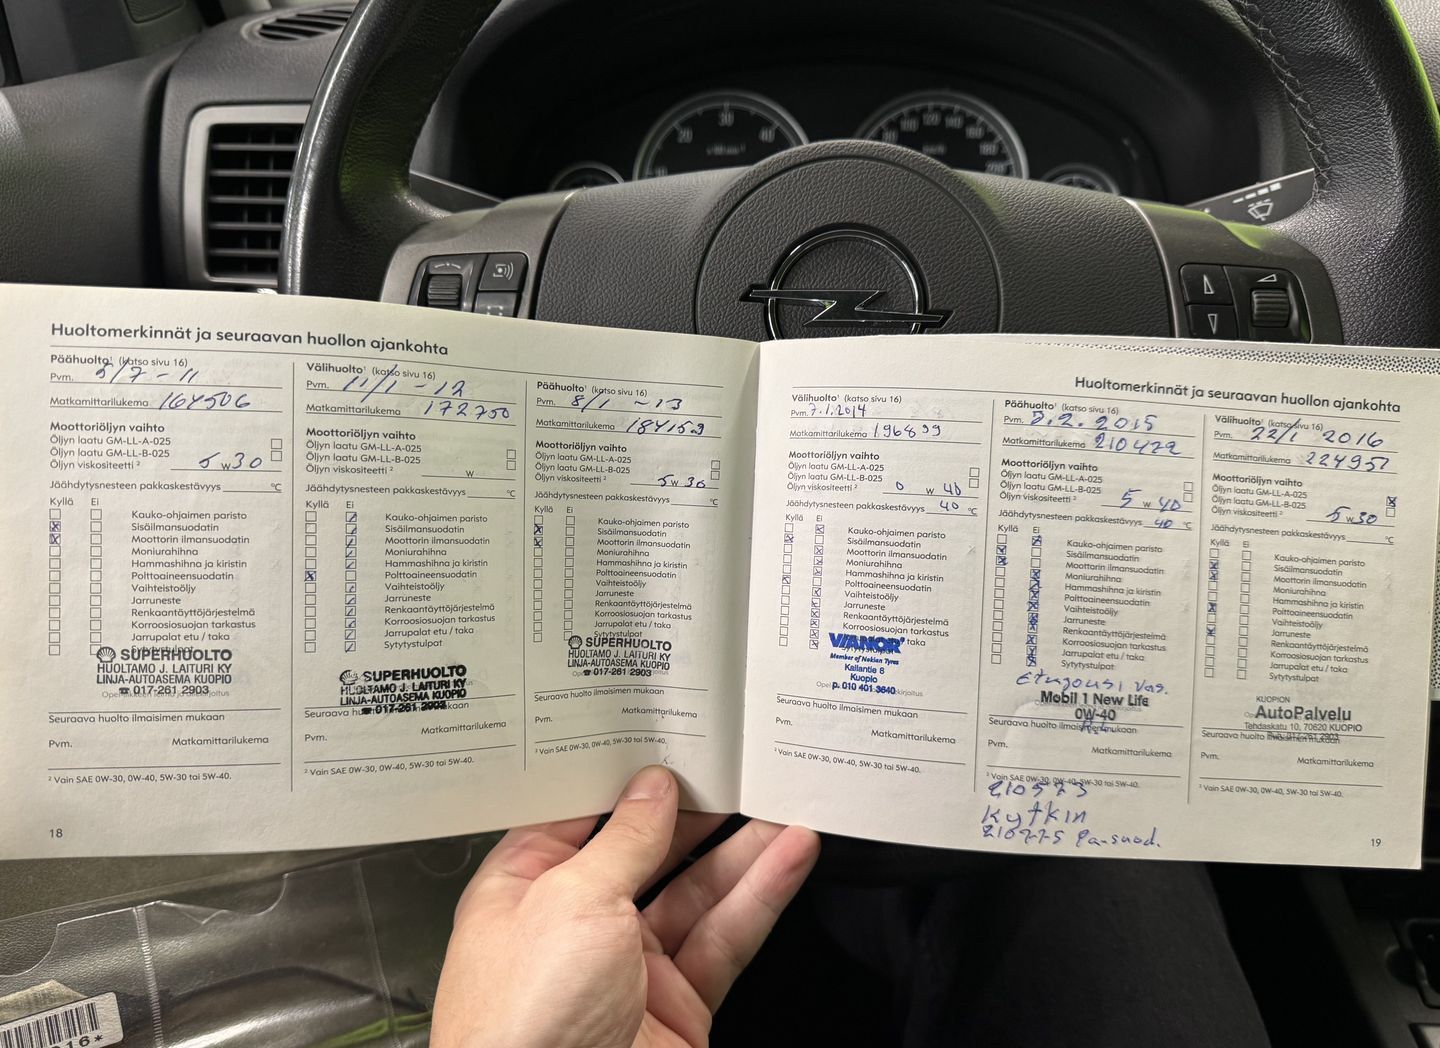 Huoltomerkinnät ja seuraavan huollon ajankohta
Päähuolto¹ (katso sivu 16)
Pvm. 5/7 - 11
Matkamittarilukema 164506
Moottoriöljyn vaihto
Öljyn laatu GM-LL-A-025
GM-LL-B-025
Öljyn viskositeetti ² 5 W 30
Jäähdytysnesteen pakkaskestävyys °C
Kyllä Ei
Kauko-ohjaimen paristo
Sisäilmansuodatin
Moottorin ilmansuodatin
Moniurahihna
Hammashihna ja kiristin
Polttoaineensuodatin
Vaihteistoöljy
Jarruneste
Renkaantäyttöjärjestelmä
Korroosiosuojan tarkastus
Jarrupalat etu / taka
Sytytystulpat
SUPERHUOLTO
HUOLTAMO J. LAITURI KY
LINJA-AUTOASEMA KUOPIO
☎ 017-261 2903
Seuraava huolto ilmaisimen mukaan
Pvm. Matkamittarilukema
² Vain SAE 0W-30, 0W-40, 5W-30 tai 5W-40.
18
Välihuolto¹ (katso sivu 16)
Pvm. 11/1 - 12
Matkamittarilukema 172750
Moottoriöljyn vaihto
Öljyn laatu GM-LL-A-025
GM-LL-B-025
Öljyn viskositeetti ² W
Jäähdytysnesteen pakkaskestävyys °C
Kyllä Ei
Kauko-ohjaimen paristo
Sisäilmansuodatin
Moottorin ilmansuodatin
Moniurahihna
Hammashihna ja kiristin
Polttoaineensuodatin
Vaihteistoöljy
Jarruneste
Renkaantäyttöjärjestelmä
Korroosiosuojan tarkastus
Jarrupalat etu / taka
Sytytystulpat
SUPERHUOLTO
HUOLTAMO J. LAITURI KY
LINJA-AUTOASEMA KUOPIO
☎ 017-261 2903
Pvm. Matkamittarilukema
² Vain SAE 0W-30, 0W-40, 5W-30 tai 5W-40.
Päähuolto¹ (katso sivu 16)
Pvm. 8/1 - 13
Matkamittarilukema 184152
Moottoriöljyn vaihto
Öljyn laatu GM-LL-A-025
GM-LL-B-025
Öljyn viskositeetti ² 5 W 30
Jäähdytysnesteen pakkaskestävyys °C
Kyllä Ei
Kauko-ohjaimen paristo
Sisäilmansuodatin
Moottorin ilmansuodatin
Moniurahihna
Hammashihna ja kiristin
Polttoaineensuodatin
Vaihteistoöljy
Jarruneste
Renkaantäyttöjärjestelmä
Korroosiosuojan tarkastus
Jarrupalat etu / taka
Sytytystulpat
SUPERHUOLTO
HUOLTAMO J. LAITURI KY
LINJA-AUTOASEMA KUOPIO
☎ 017-261 2903
Seuraava huolto ilmaisimen mukaan
Pvm. Matkamittarilukema
² Vain SAE 0W-30, 0W-40, 5W-30 tai 5W-40.
Huoltomerkinnät ja seuraavan huollon ajankohta
Välihuolto¹ (katso sivu 16)
Pvm. 7.1.2014
Matkamittarilukema 196899
Moottoriöljyn vaihto
Öljyn laatu GM-LL-A-025
GM-LL-B-025
Öljyn viskositeetti ² 0 W 40
Jäähdytysnesteen pakkaskestävyys 40 °C
Kyllä Ei
Kauko-ohjaimen paristo
Sisäilmansuodatin
Moottorin ilmansuodatin
Moniurahihna
Hammashihna ja kiristin
Polttoaineensuodatin
Vaihteistoöljy
Jarruneste
Renkaantäyttöjärjestelmä
Korroosiosuojan tarkastus
taka
VIANOR
Member of Nokian Tyres
Kallantie 8
Kuopio
p. 010 401 3640
Seuraava huolto ilmaisimen mukaan
Pvm. Matkamittarilukema
² Vain SAE 0W-30, 0W-40, 5W-30 tai 5W-40.
Päähuolto¹ (katso sivu 16)
Pvm. 2. 2015
Matkamittarilukema 210422
Moottoriöljyn vaihto
Öljyn laatu GM-LL-A-025
GM-LL-B-025
Öljyn viskositeetti ² 5 W 40
Jäähdytysnesteen pakkaskestävyys 40 °C
Kyllä Ei
Kauko-ohjaimen paristo
Sisäilmansuodatin
Moottorin ilmansuodatin
Moniurahihna
Hammashihna ja kiristin
Polttoaineensuodatin
Vaihteistoöljy
Jarruneste
Renkaantäyttöjärjestelmä
Korroosiosuojan tarkastus
Jarrupalat etu / taka
Sytytystulpat
Etujousi vas.
Mobil 1 New Life
0W-40
Pvm. Matkamittarilukema
² Vain SAE 0W-30, 0W-40, 5W-30 tai 5W-40.
210573
Kytkin
210775 Pa-suod.
Välihuolto¹ (katso sivu 16)
Pvm. 22/1 2016
Matkamittarilukema 224957
Moottoriöljyn vaihto
Öljyn laatu GM-LL-A-025
GM-LL-B-025
Öljyn viskositeetti ² 5 W 30
Jäähdytysnesteen pakkaskestävyys °C
Kyllä Ei
Kauko-ohjaimen paristo
Sisäilmansuodatin
Moottorin ilmansuodatin
Moniurahihna
Hammashihna ja kiristin
Polttoaineensuodatin
Vaihteistoöljy
Jarruneste
Renkaantäyttöjärjestelmä
Korroosiosuojan tarkastus
Jarrupalat etu / taka
Sytytystulpat
KUOPION
AutoPalvelu
Tehdaskatu 10, 70620 KUOPIO
Seuraava huolto ilmaisimen mukaan
Pvm. Matkamittarilukema
² Vain SAE 0W-30, 0W-40, 5W-30 tai 5W-40.
19